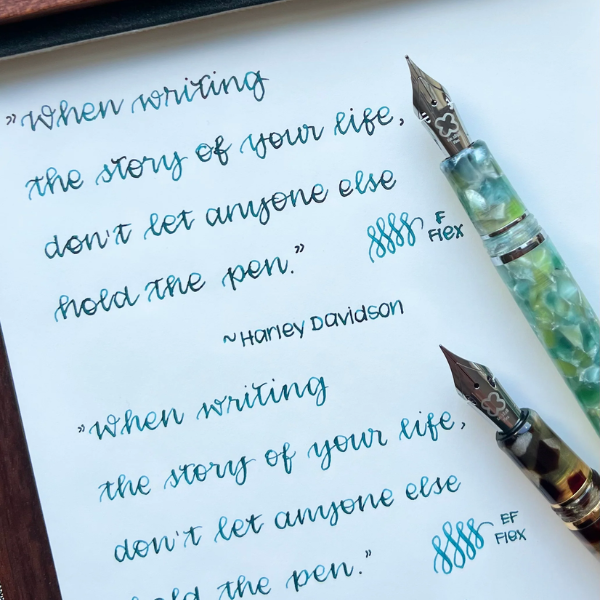 »When writing
the story of your life,
don't let anyone else
hold the pen.”
F
Flex
~Harley Davidson
»When writing
the story of your life,
don't let anyone else
hold the pen.”
EF
Flex